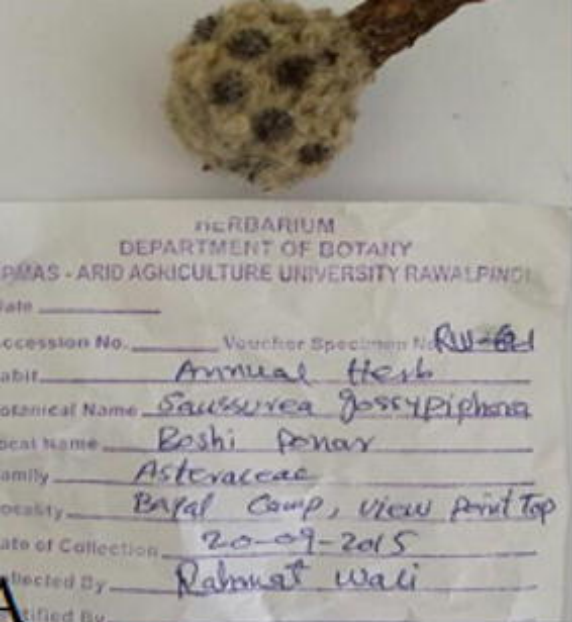 HERBARIUM
DEPARTMENT OF BOTANY
PMAS - ARID AGRICULTURE UNIVERSITY RAWALPINDI
ate
ccession No. Voucher Specimen No
abit Annual Herb
otanical Name Saussurea gossypiphora
ocal Name Boshi ponar
amily Asteraceae
ocality Camp, view point Top
ate of Collection 20-09-2015
llected By Rahmat Wali
A
tified By